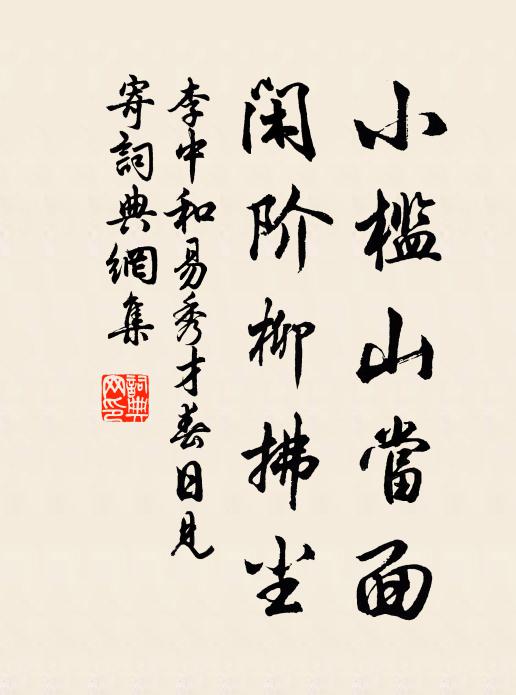 小槛山當面
闲阶柳拂尘
李中和易秀才春日见
寄詞典網集
詞典网印